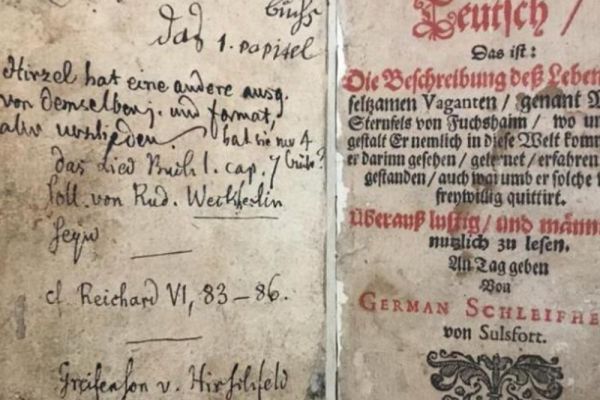 buchs
das 1. capitel
Hirzel hat eine andere ausg.
von demselben j. und format,
aber verschieden. hat sie nur 4
das Lied Buch 1. cap. 7
soll von Rud. Weckherlin
seyn
cf. Reichard VI, 83-86.
Greifenson v. Hirschfeld
Teutsch /
Das ist:
Die Beschreibung deß Leben
seltzamen Vaganten / genant
Sternfels von Fuchshaim / wo un
gestalt Er nemlich in diese Welt kom
er darinn gesehen / gelernet / erfahren
gestanden / auch warumb er solche
freywillig quittirt.
Überauß lustig / und männ
nutzlich zu lesen.
An Tag geben
Von
GERMAN SCHLEIFHE
von Sulsfort.